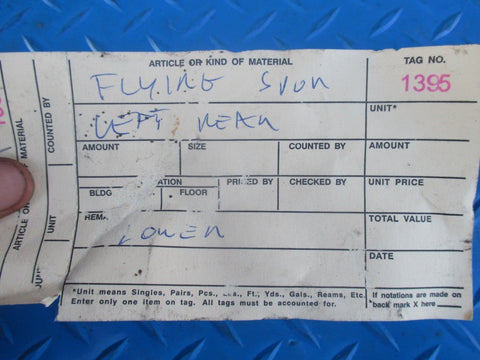 ARTICLE OR KIND OF MATERIAL
TAG NO.
FLYING SPUR
1395
LEFT REAR
UNIT*
AMOUNT SIZE COUNTED BY AMOUNT
BLDG FLOOR PRICED BY CHECKED BY UNIT PRICE
LOWER
TOTAL VALUE
DATE
*Unit means Singles, Pairs, Pcs., Ft., Yds., Gals., Reams, Etc.
Enter only one item on tag. All tags must be accounted for.
If notations are made on
back mark X here
COUNTED BY
UNIT